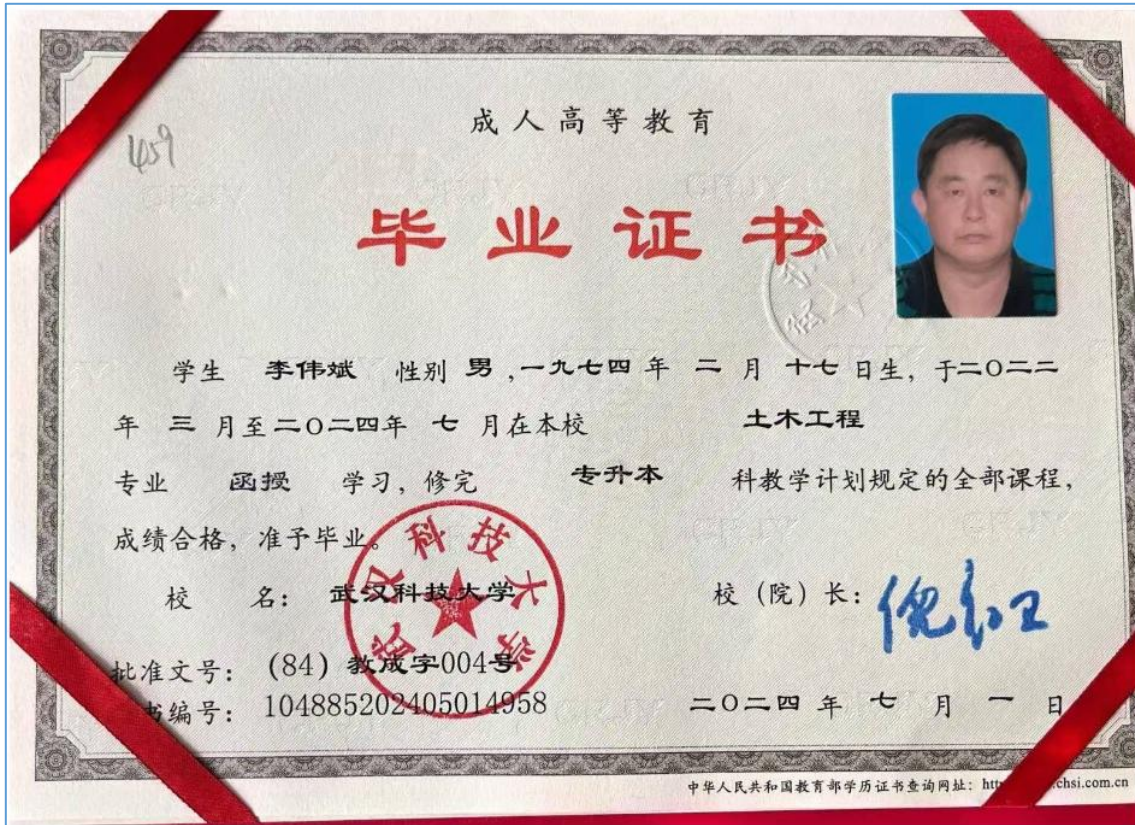 成人高等教育
459
毕业证书
学生 李伟斌 性别 男,一九七四年 二 月 十七日生, 于二〇二二
年 三 月至二〇二四年 七 月在本校 土木工程
专业 函授 学习, 修完 专升本 科教学计划规定的全部课程,
成绩合格, 准予毕业。
校 名: 武汉科技大学 校(院)长: 倪红卫
武汉科技大学
批准文号: (84)教成字004号
书编号: 104885202405014958 二〇二四 年 七 月 一 日
中华人民共和国教育部学历证书查询网址: htt chsi.com.cn